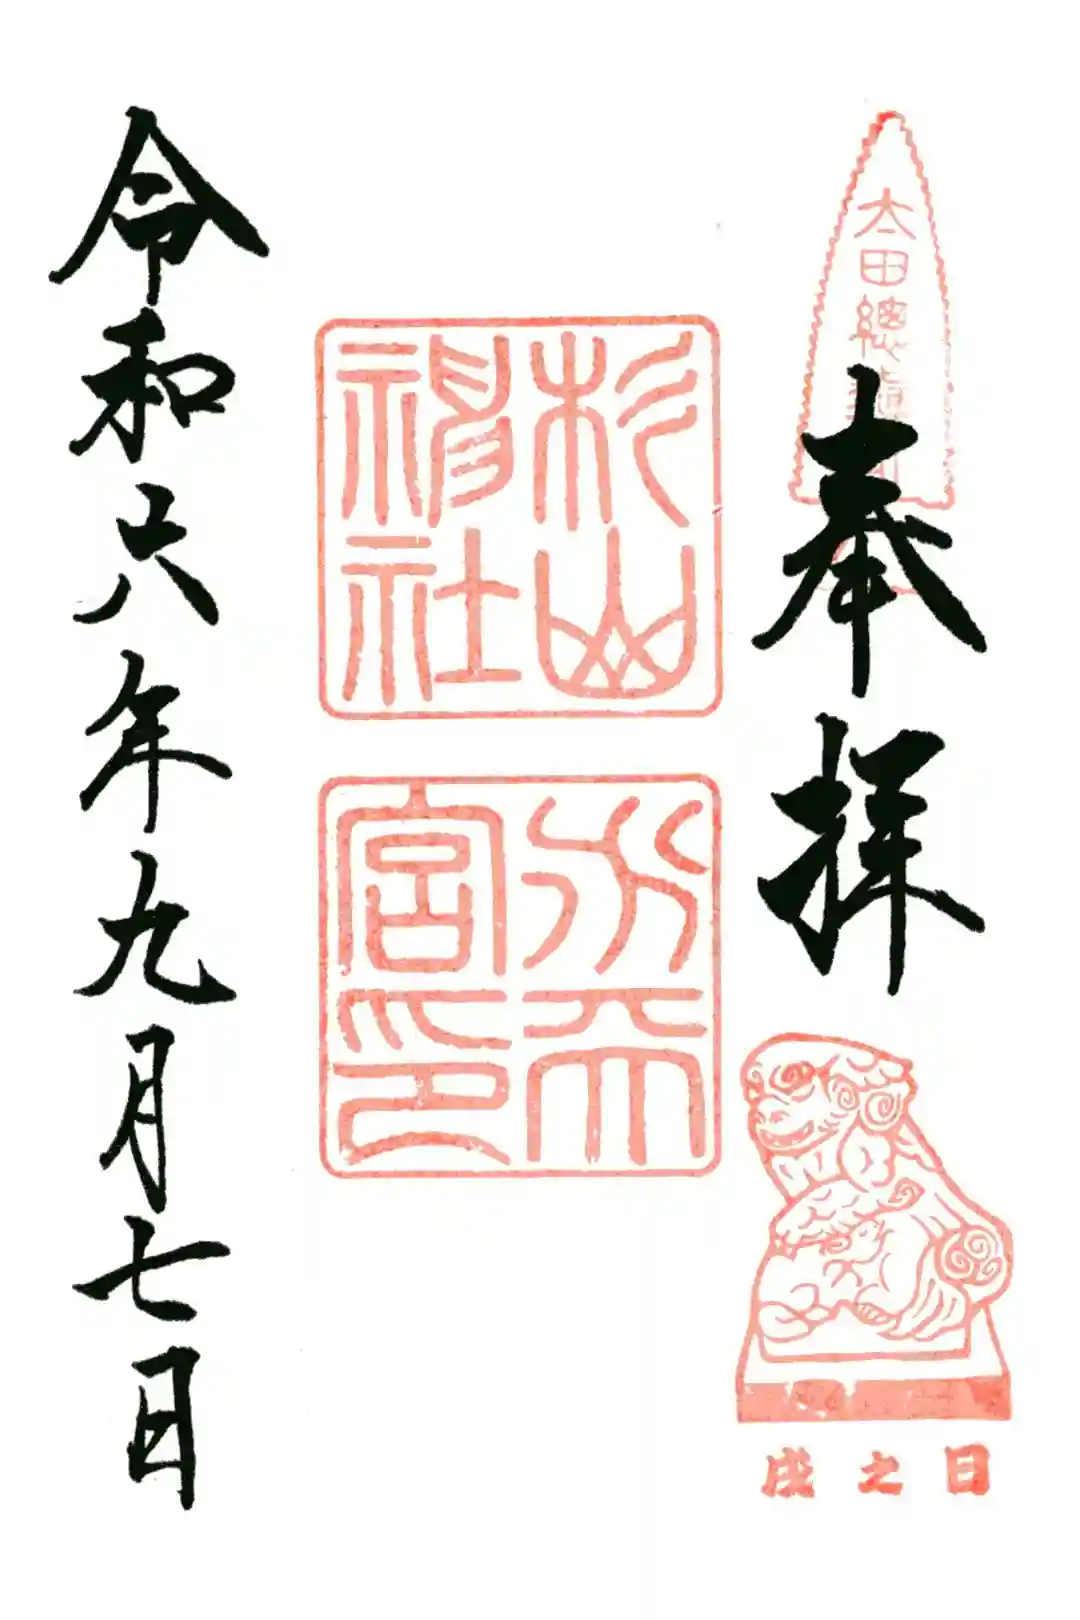 奉拝
太田總鎮
杉山神社
水天宮印
令和六年九月七日
戌之日